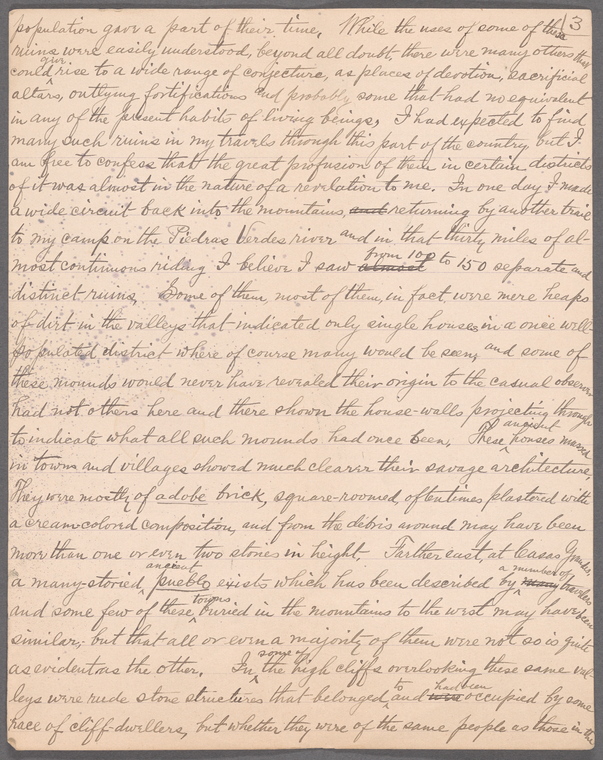 13
population gave a part of their time. While the uses of some of these
ruins were easily understood, beyond all doubt, there were many others that
could give rise to a wide range of conjecture, as places of devotion, sacrificial
altars, outlying fortifications and probably some that had no equivalent
in any of the present habits of living beings. I had expected to find
many such ruins in my travels through this part of the country, but I
am free to confess that the great profusion of them in certain districts
of it was almost in the nature of a revelation to me. In one day I made
a wide circuit back into the mountains, and returning by another trail
to my camp on the Piedras Verdes river and in that thirty miles of al-
most continuous riding I believe I saw almost from 100 to 150 separate and
distinct ruins. Some of them, most of them, in fact, were mere heaps
of dirt in the valleys that indicated only single houses in a once well-
populated district where of course many would be seen, and some of
these mounds would never have revealed their origin to the casual observer
had not others here and there shown the house-walls projecting through
to indicate what all such mounds had once been. These ancient houses massed
in towns and villages showed much clearer their savage architecture.
They were mostly of adobe brick, square-roomed, oftentimes plastered with
a cream-colored composition, and from the debris around may have been
more than one or even two stories in height. Farther east, at Casas Grandes
a many-storied, ancient pueblo exists which has been described by many a number of travelers
and some few of these towns buried in the mountains to the west may have been
similar; but that all or even a majority of them were not so is quite
as evident as the other. In some of the high cliffs overlooking these same val-
leys were rude stone structures that belonged to and were had been occupied by some
race of cliff-dwellers, but whether they were of the same people as those in the